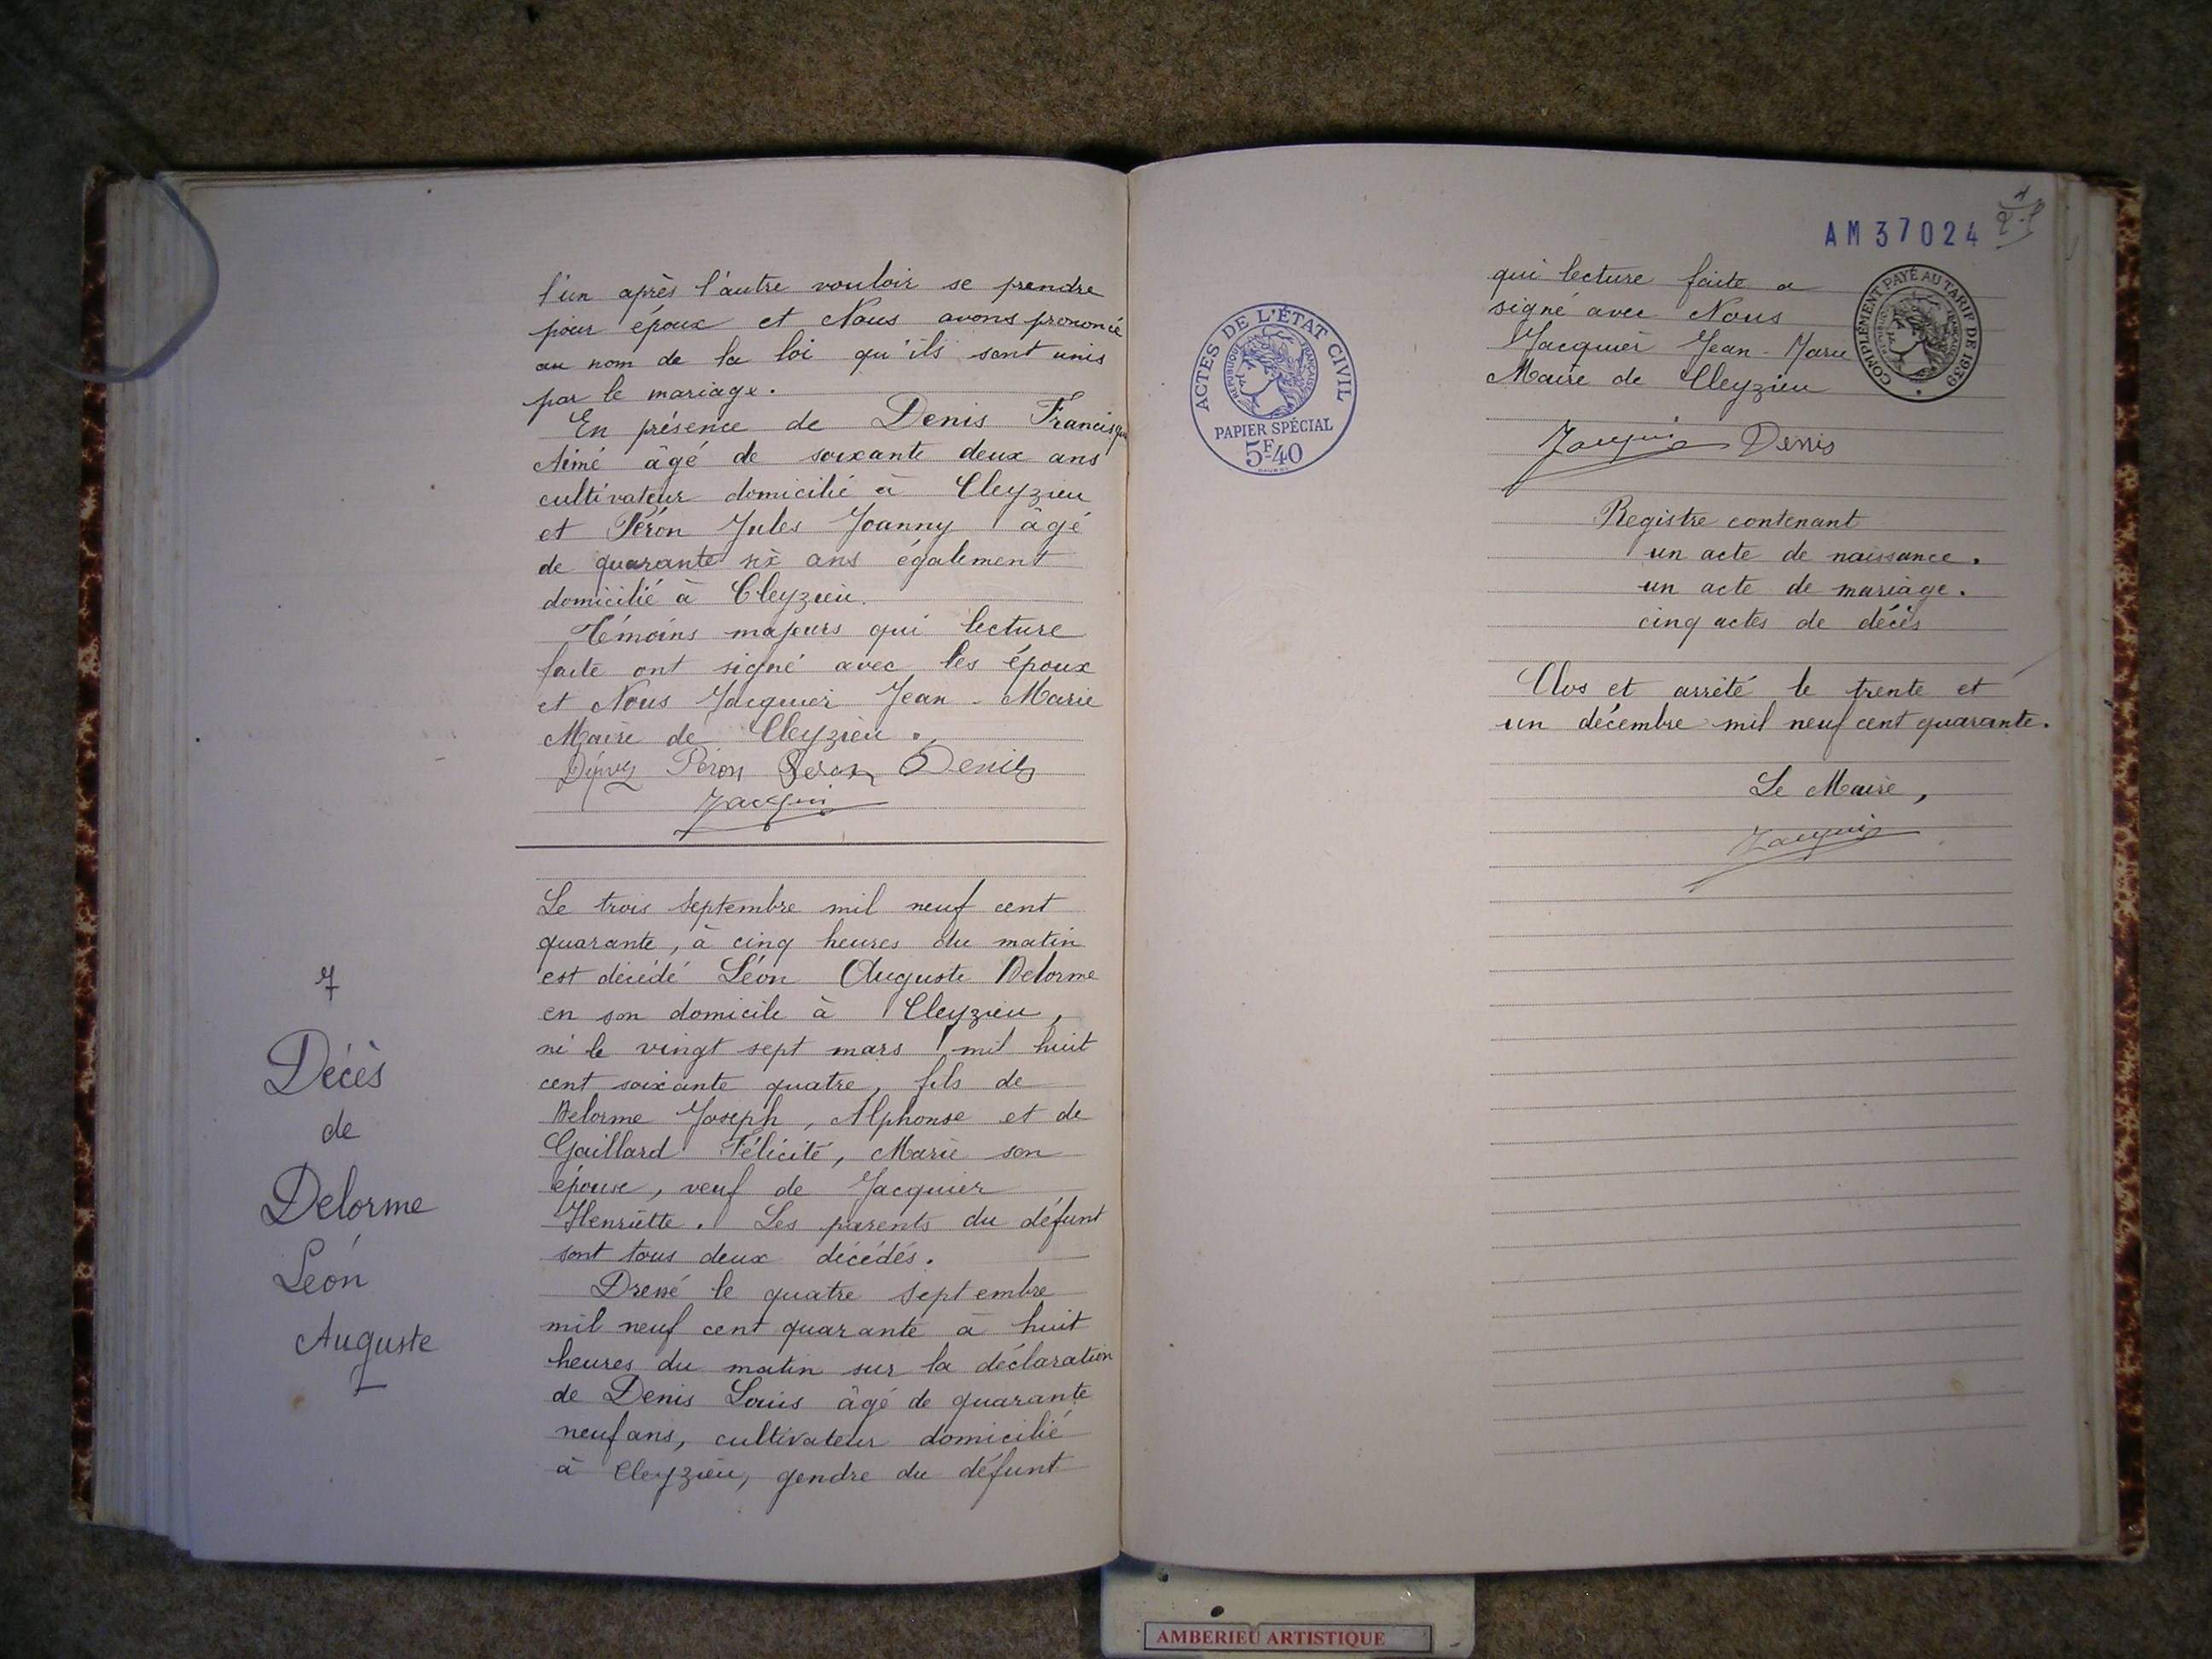 l'un après l'autre vouloir se prendre
pour époux et Nous avons prononcé
au nom de la loi qu'ils sont unis
par le mariage.
En présence de Denis Francisque
Aimé âgé de soixante deux ans
cultivateur domicilié à Cleyzieu
et Péron Jules Joanny âgé
de quarante six ans également
domicilié à Cleyzieu.
Témoins majeurs qui lecture
faite ont signé avec les époux
et Nous Jacquier Jean-Marie
Maire de Cleyzieu.
Péron Denis
Jacquier
7
Décès
de
Delorme
Léon
Auguste
Le trois septembre mil neuf cent
quarante, à cinq heures du matin
est décédé Léon Auguste Delorme
en son domicile à Cleyzieu,
né le vingt sept mars mil huit
cent soixante quatre, fils de
Delorme Joseph, Alphonse et de
Gaillard Félicité, Marie son
épouse, veuf de Jacquier
Henriette. Les parents du défunt
sont tous deux décédés.
Dressé le quatre septembre
mil neuf cent quarante à huit
heures du matin sur la déclaration
de Denis Louis âgé de quarante
neuf ans, cultivateur domicilié
à Cleyzieu, gendre du défunt
AM37024
ACTES DE L'ÉTAT CIVIL
RÉPUBLIQUE FRANÇAISE
PAPIER SPÉCIAL
5F40
COMPLÉMENT PAYÉ AU TARIF DE 1939
qui lecture faite a
signé avec Nous
Jacquier Jean-Marie
Maire de Cleyzieu
Jacquier Denis
Registre contenant
un acte de naissance.
un acte de mariage.
cinq actes de décès
Clos et arrêté le trente et
un décembre mil neuf cent quarante.
Le Maire,
Jacquier
AMBERIEU ARTISTIQUE